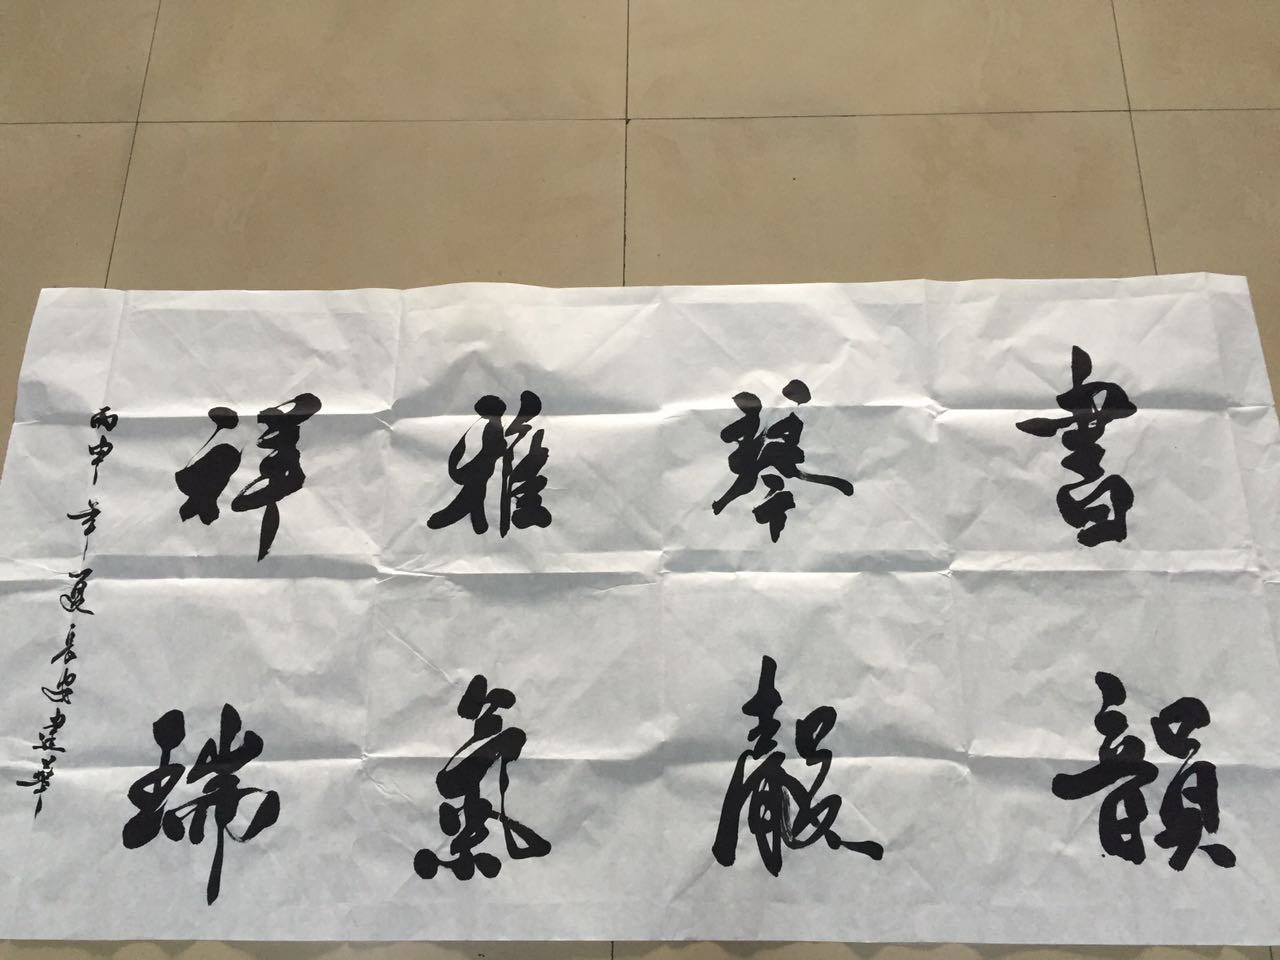 書韻
琴聲
雅氣
祥瑞
丙申年夏長安建華